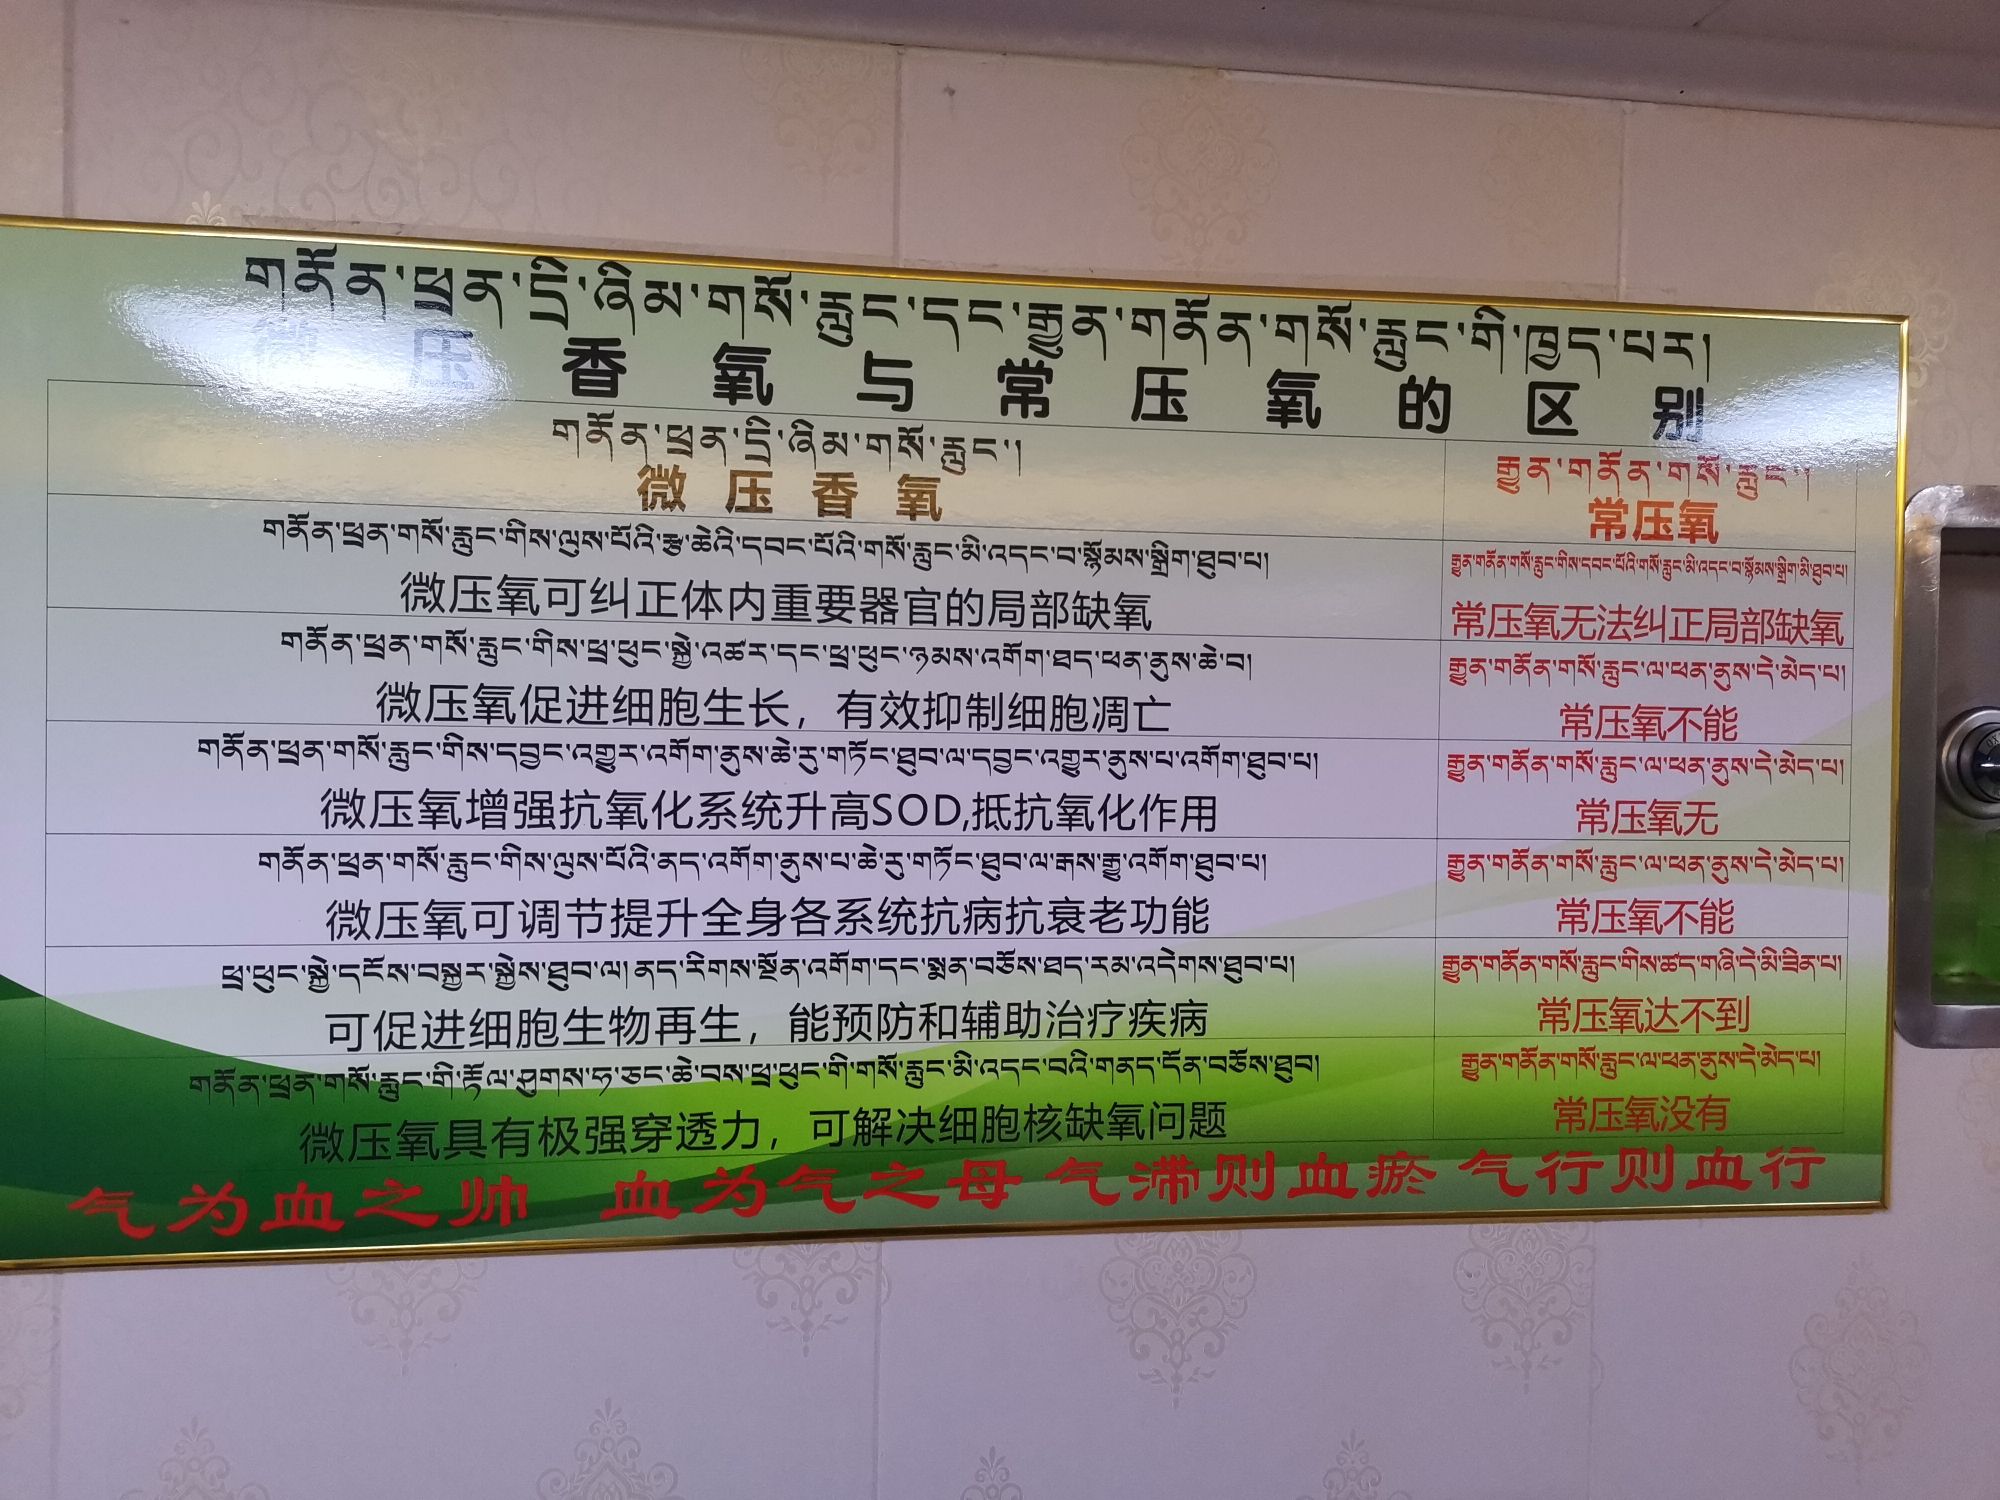 གནོན་ཕྲན་དྲི་ཞིམ་གསོ་རླུང་དང་རྒྱུན་གནོན་གསོ་རླུང་གི་ཁྱད་པར།
微压香氧与常压氧的区别
གནོན་ཕྲན་དྲི་ཞིམ་གསོ་རླུང་།
微压香氧
རྒྱུན་གནོན་གསོ་རླུང་།
常压氧
གནོན་ཕྲན་གསོ་རླུང་གིས་ལུས་པོའི་རྩ་ཆེའི་དབང་པོའི་གསོ་རླུང་མི་འདང་བ་སྙོམས་སྒྲིག་ཐུབ་པ།
微压氧可纠正体内重要器官的局部缺氧
རྒྱུན་གནོན་གསོ་རླུང་གིས་དབང་པོའི་གསོ་རླུང་མི་འདང་བ་སྙོམས་སྒྲིག་མི་ཐུབ་པ།
常压氧无法纠正局部缺氧
གནོན་ཕྲན་གསོ་རླུང་གིས་ཕྲ་ཕུང་སྐྱེ་འཚར་དང་ཕྲ་ཕུང་ཉམས་འགོག་ཐད་ཕན་ནུས་ཆེ་བ།
微压氧促进细胞生长，有效抑制细胞凋亡
རྒྱུན་གནོན་གསོ་རླུང་ལ་ཕན་ནུས་དེ་མེད་པ།
常压氧不能
གནོན་ཕྲན་གསོ་རླུང་གིས་དབྱང་འགྱུར་འགོག་ནུས་ཆེ་རུ་གཏོང་ཐུབ་ལ་དབྱང་འགྱུར་ནུས་པ་འགོག་ཐུབ་པ།
微压氧增强抗氧化系统升高SOD,抵抗氧化作用
རྒྱུན་གནོན་གསོ་རླུང་ལ་ཕན་ནུས་དེ་མེད་པ།
常压氧无
གནོན་ཕྲན་གསོ་རླུང་གིས་ལུས་པོའི་ནད་འགོག་ནུས་པ་ཆེ་རུ་གཏོང་ཐུབ་ལ་རྒས་རྒྱུ་འགོག་ཐུབ་པ།
微压氧可调节提升全身各系统抗病抗衰老功能
རྒྱུན་གནོན་གསོ་རླུང་ལ་ཕན་ནུས་དེ་མེད་པ།
常压氧不能
ཕྲ་ཕུང་སྐྱེ་དངོས་བསྐྱར་སྐྱེས་ཐུབ་ལ། ནད་རིགས་སྔོན་འགོག་དང་སྨན་བཅོས་ཐད་རམ་འདེགས་ཐུབ་པ།
可促进细胞生物再生，能预防和辅助治疗疾病
རྒྱུན་གནོན་གསོ་རླུང་གིས་ཚད་གཞི་དེ་མི་ཟིན་པ།
常压氧达不到
གནོན་ཕྲན་གསོ་རླུང་གི་རྟོལ་ཤུགས་ཧ་ཅང་ཆེ་བས་ཕྲ་ཕུང་གི་གསོ་རླུང་མི་འདང་བའི་གནད་དོན་བཅོས་ཐུབ།
微压氧具有极强穿透力，可解决细胞核缺氧问题
རྒྱུན་གནོན་གསོ་རླུང་ལ་ཕན་ནུས་དེ་མེད་པ།
常压氧没有
气为血之帅 血为气之母 气滞则血瘀 气行则血行